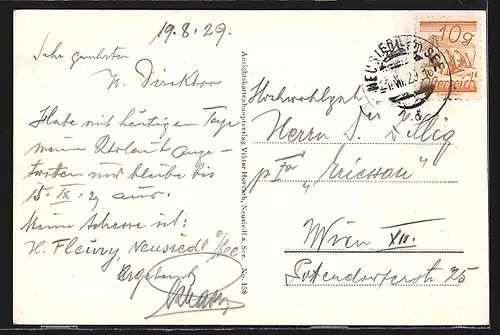 19.8.29.
Sehr geehrter
H. Direktor
Habe mit heutigem Tage
meinen Urlaub ange-
treten und bleibe bis
15. IX. 29 aus.
Meine Adresse ist:
H. Fleury, Neusiedl a/See
Ergebenst
Ansichtskartenhauptverlag Viktor Horvath, Neusiedl a. See. No. 158
10g
NEUSIEDL AM SEE
Hochwohlgeb.
Herrn
p. Fa „Ericson"
Wien XII.
Pottendorferstr 25